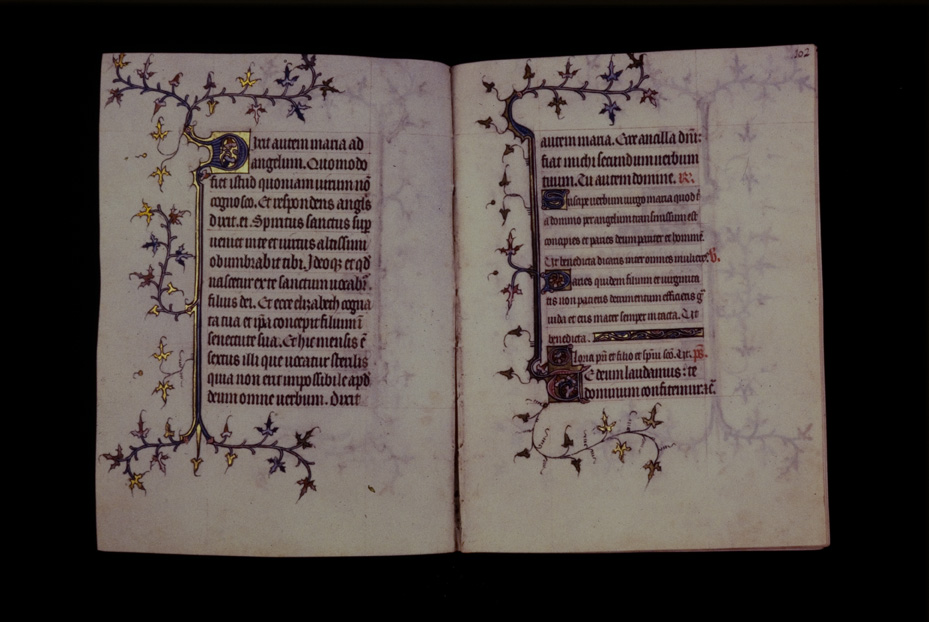 Dixit autem maria ad
angelum. Quomodo
fiet istud quoniam uirum nō
cognosco. Et respondens angls
dixit. ei. Spiritus sanctus sup
ueniet in te et uirtus altissimi
obumbrabit tibi. Ideoqz et qd
nascetur ex te sanctum uocabit
filius dei. Et ecce elizabeth cogna
ta tua et ipa concepit filium ī
senectute sua. Et hic mensis ē
sextus illi que uocatur sterilis
quia non erit impossibile apd
deum omne uerbum. Dixit
102
autem maria. Ecce ancilla dni:
fiat michi secundum uerbum
tuum. Tu autem domine. R.
Suscipe uerbum uirgo maria quod t
a domino per angelum transmissum est
concipies et paries deum pariter et hominē.
Ut benedicta dicaris inter omnes mulieres. V.
Paries quidem filium et uirginita
tis non pacieris detrimentum efficieris g
uida et eris mater semper intacta. Ut
benedicta.
Gloria pri et filio et spiui sco. Ut. ps.
Te deum laudamus: te
dominum confitemur. zc.